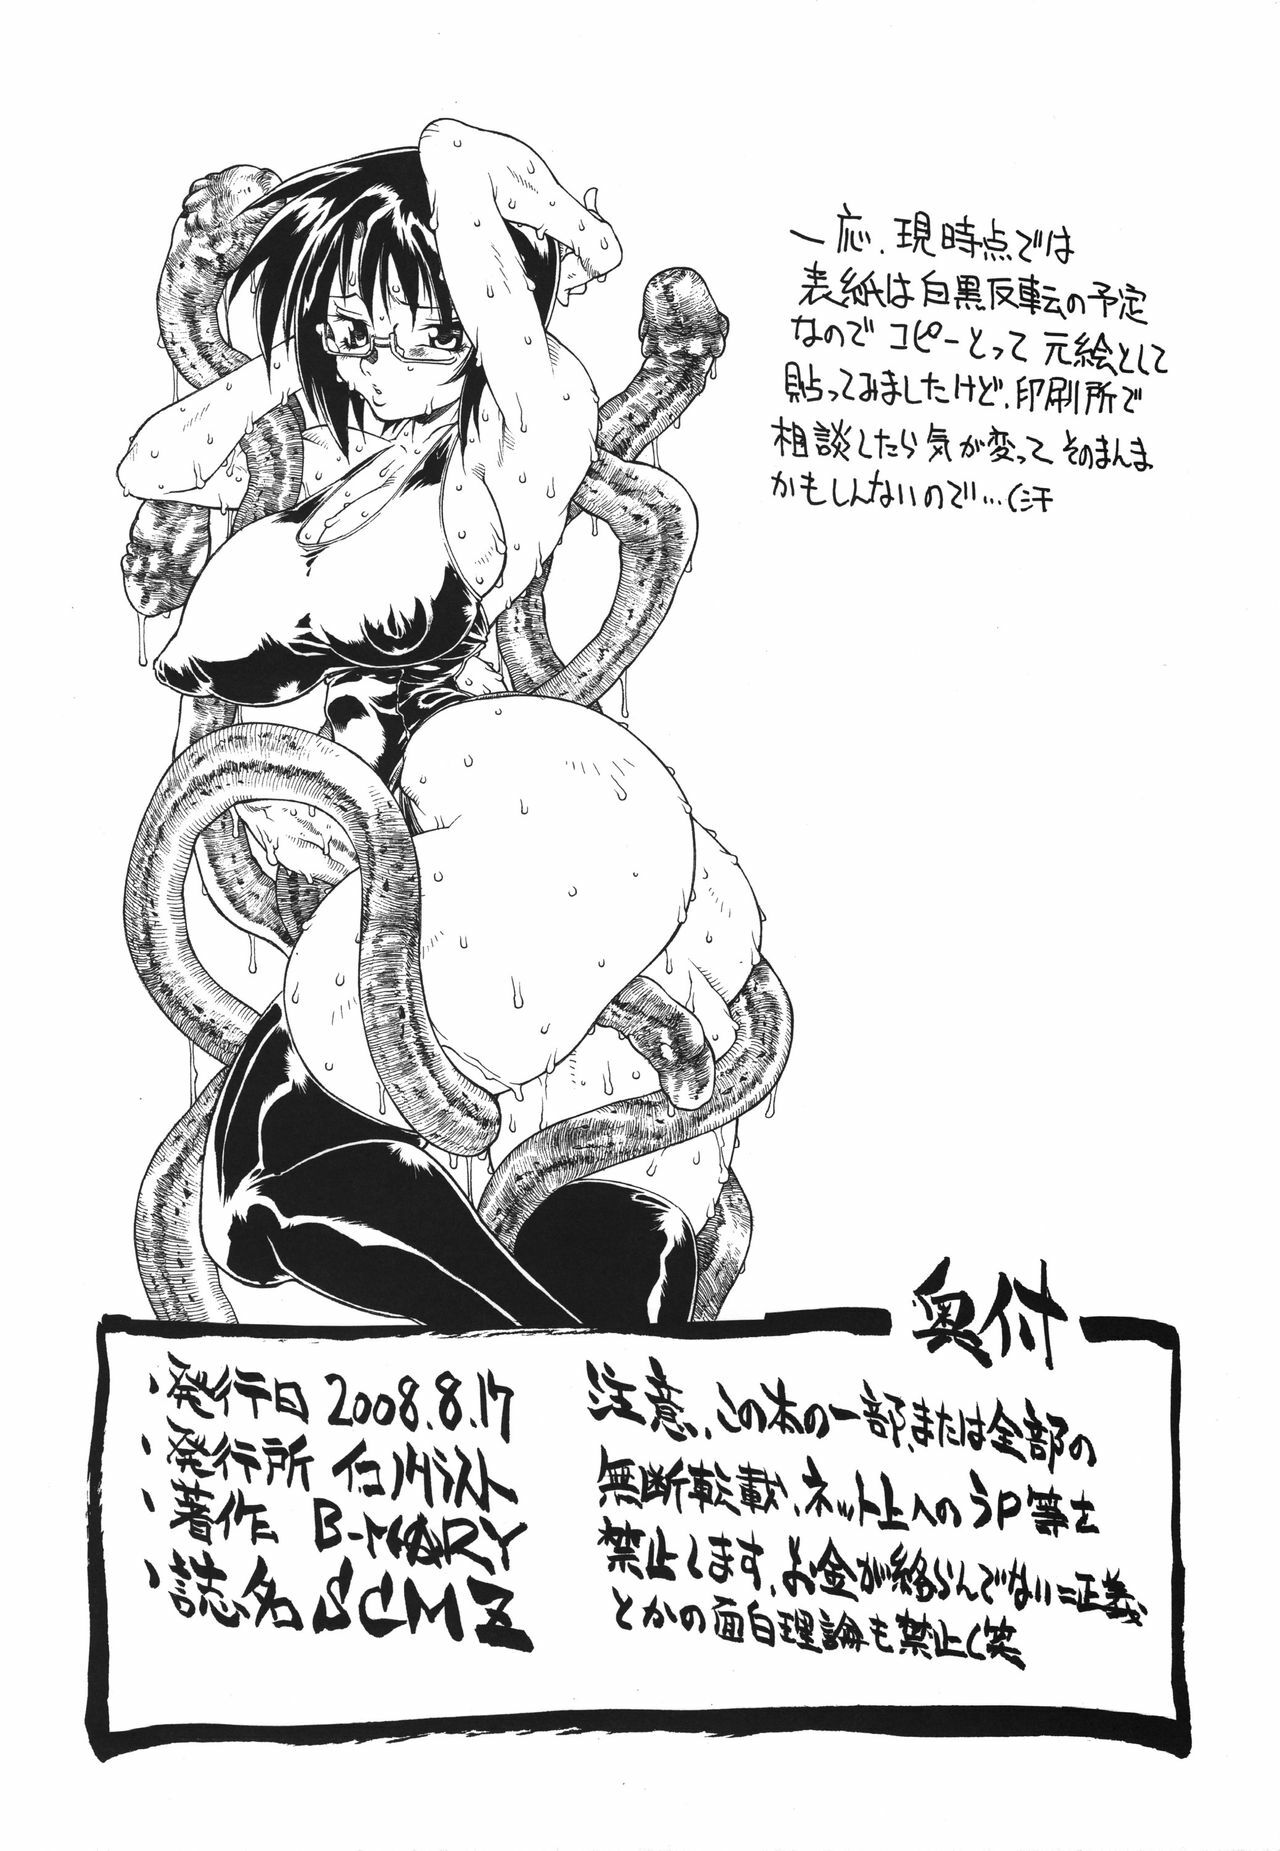 一応、現時点では
表紙は白黒反転の予定
なので コピーとって 元絵として
貼ってみましたけど、印刷所で
相談したら気が変って そのまんま
かもしんないので…(汗
奥付
・発行日 2008.8.17
・発行所
・著作 B-MARY
・誌名 SCMZ
注意、この本の一部、または全部の
無断転載、ネット上へのうP等を
禁止します、お金が絡らんでない=正義
とかの面白理論も禁止(笑